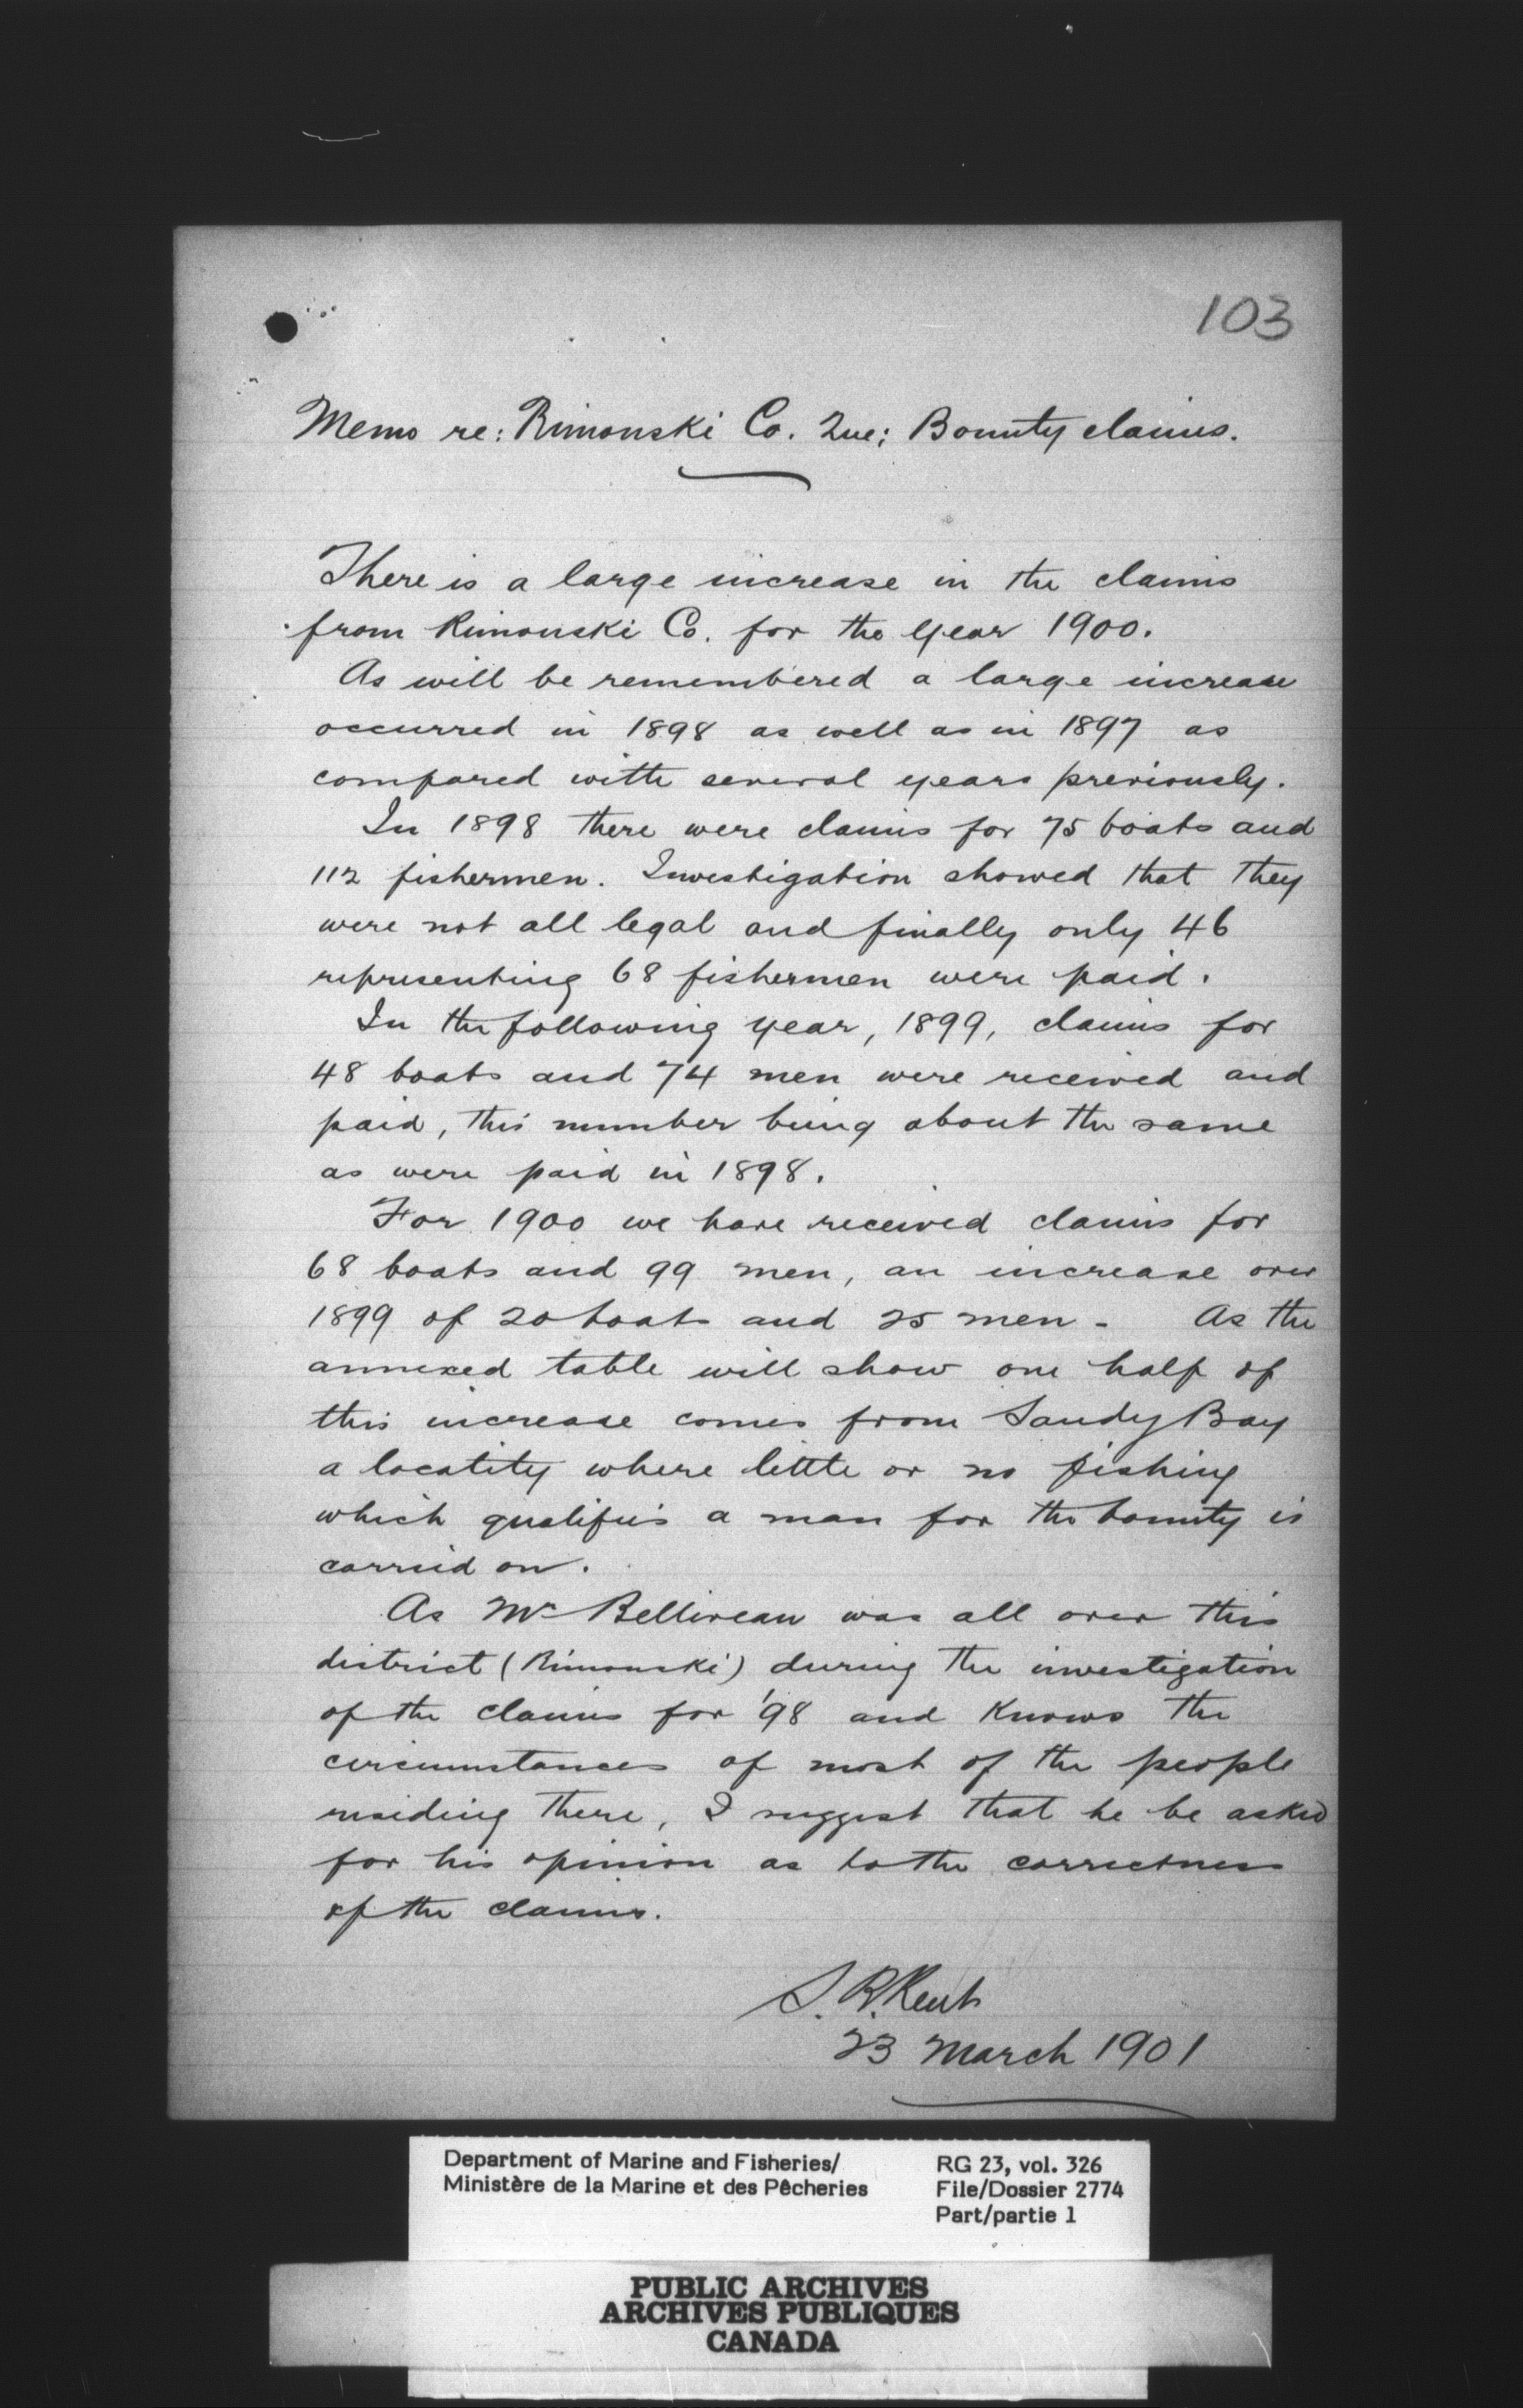 103
Memo re: Rimouski Co. Que; Bounty claims.
There is a large increase in the claims
from Rimouski Co. for the year 1900.
As will be remembered a large increase
occurred in 1898 as well as in 1897 as
compared with several years previously.
In 1898 there were claims for 75 boats and
112 fishermen. Investigation showed that they
were not all legal and finally only 46
representing 68 fishermen were paid.
In the following year, 1899, claims for
48 boats and 74 men were received and
paid, this number being about the same
as were paid in 1898.
For 1900 we have received claims for
68 boats and 99 men, an increase over
1899 of 20 boats and 25 men - As the
annexed table will show one half of
this increase comes from Sandy Bay
a locality where little or no fishing
which qualifies a man for the bounty is
carried on.
As Mr Belliveau was all over this
district (Rimouski) during the investigation
of the claims for '98 and knows the
circumstances of most of the people
residing there, I suggest that he be asked
for his opinion as to the correctness
of the claims.
S. R. Kent
23 March 1901
Department of Marine and Fisheries/
Ministère de la Marine et des Pêcheries
RG 23, vol. 326
File/Dossier 2774
Part/partie 1
PUBLIC ARCHIVES
ARCHIVES PUBLIQUES
CANADA